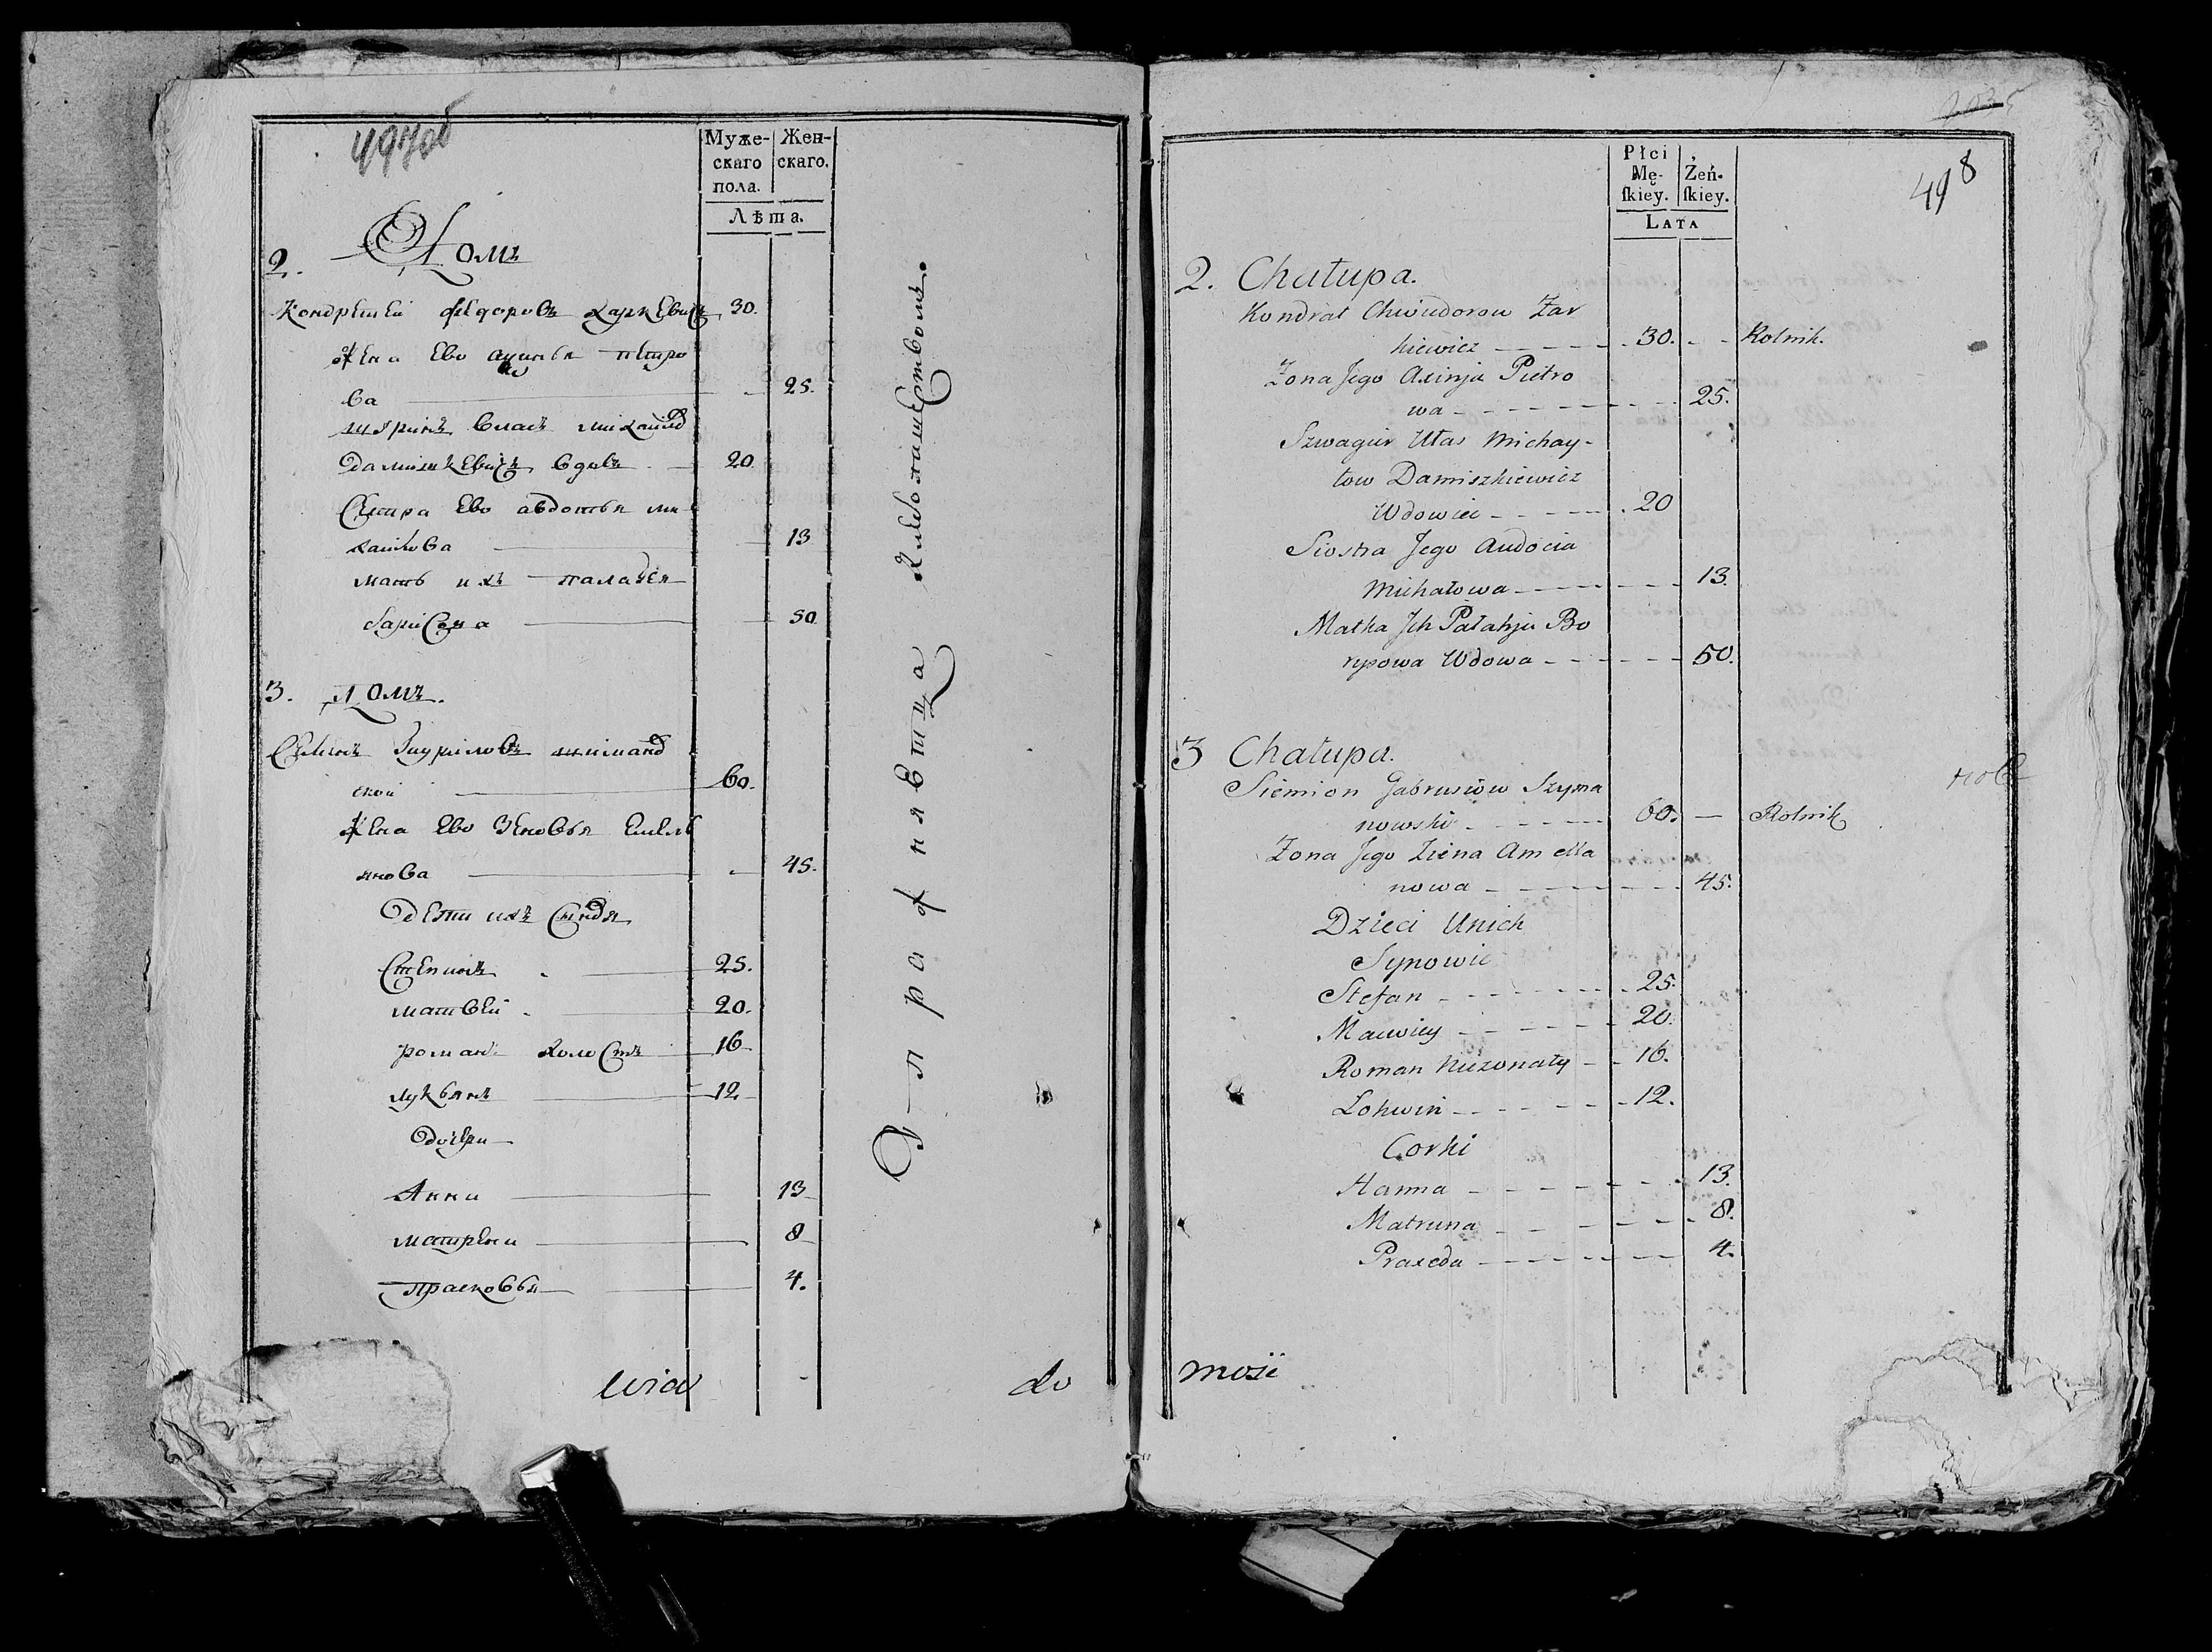 497об
Муже-
скаго
пола.
Жен-
скаго.
Лѣта.
2. Домъ
Кондратей Федоровъ Харкевичь 30.
Жена Ево аксинья петро
ва 25.
шуринъ власъ михайлов
Дамишкевичь вдовъ 20
Сестра Ево авдотья ми
хайлова 13
мать ихъ палагея
Борисова 50
3. Домъ.
Семенъ Гаврилов шиманов
ской 60.
Жена Ево Зеновья Емель
янова 45.
Дети ихъ Сыновя
Степанъ 25.
матвей 20.
роман холостъ 16
лукьянъ 12
Дочери
Анна 13
матрена 8
прасковья 4.
Упражняетца хлебопашеством.
wia
do
Płci
Mę-
ſkiey.
Żeń-
ſkiey.
LATA
498
2. Chałupa.
Kondrat Chwiedorow Zar
kiewicz 30. Rolnik.
Zona Jego Axinja Pietro
wa 25.
Szwagier Ułas Michay-
łow Damiszkiewicz
Wdowiec 20
Siostra Jego Audocia
Michałowa 13.
Matka Jch Pałahja Bo
rysowa Wdowa 50.
3 Chałupa.
Siemion Gabrusiow Szyma
nowski 60. Rolnik
Zona Jego Ziena Amella
nowa 45.
Dzieci Unich
Synowie
Stefan 25.
Maćwiey 20.
Roman Niezonaty 16.
Łohwin 12.
Corki
Hanna 13.
Matruna 8.
Praxeda 4.
mosii